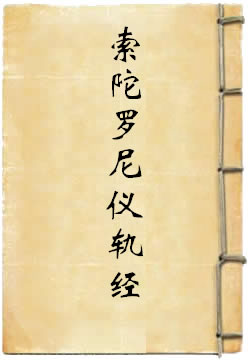 索陀罗尼仪轨经